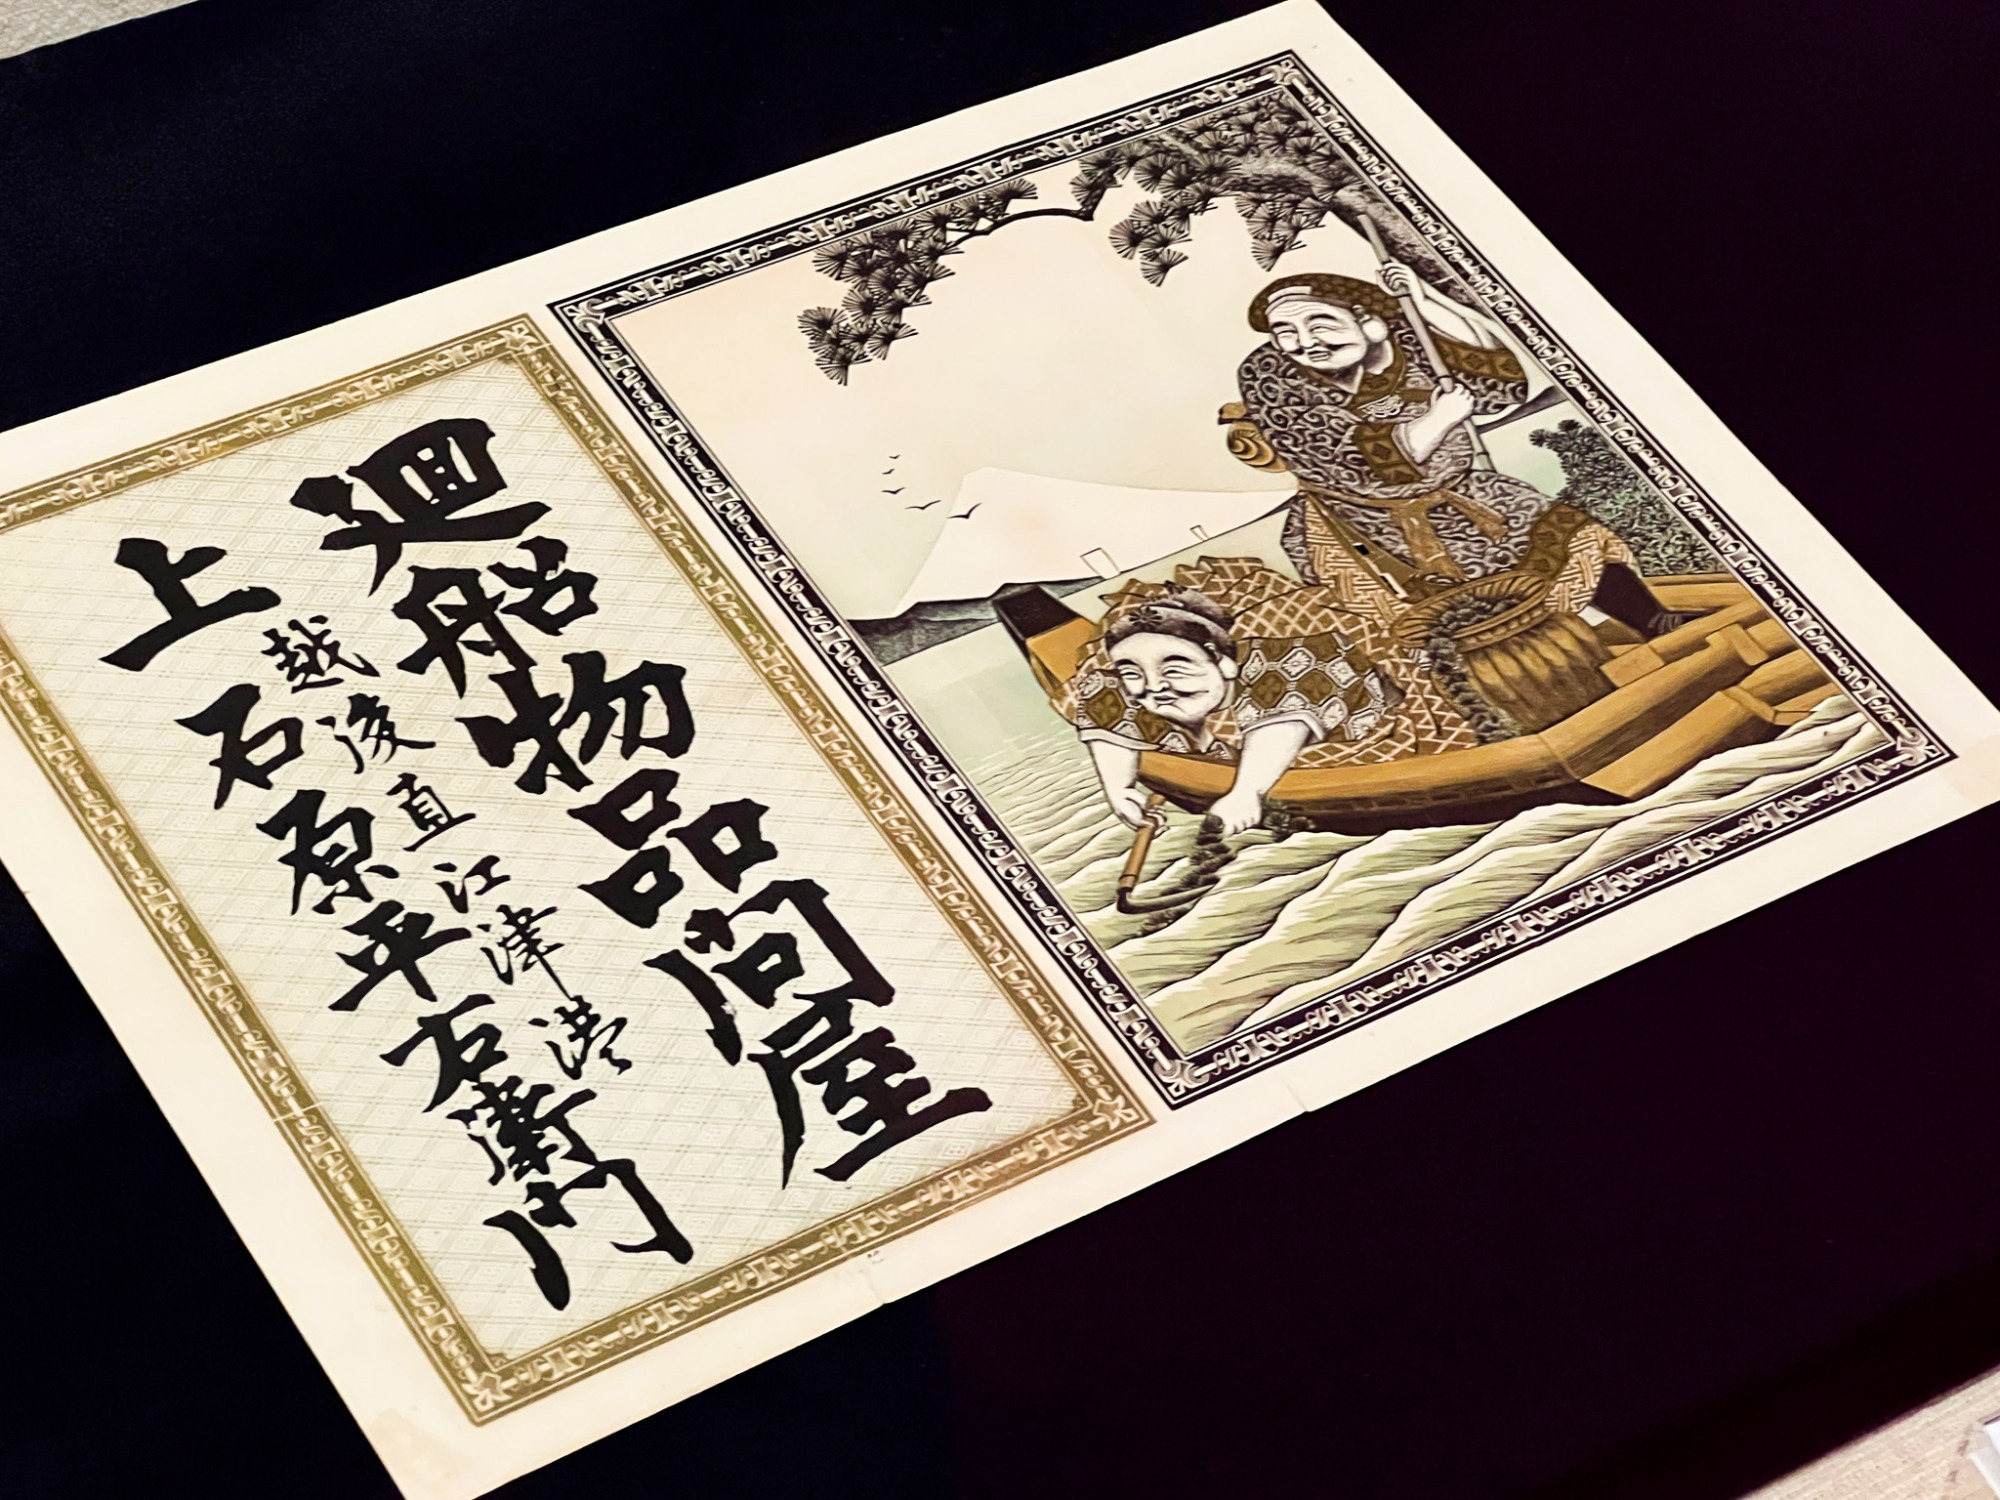 廻船物品問屋
越後直江津港
上石原平右衛門